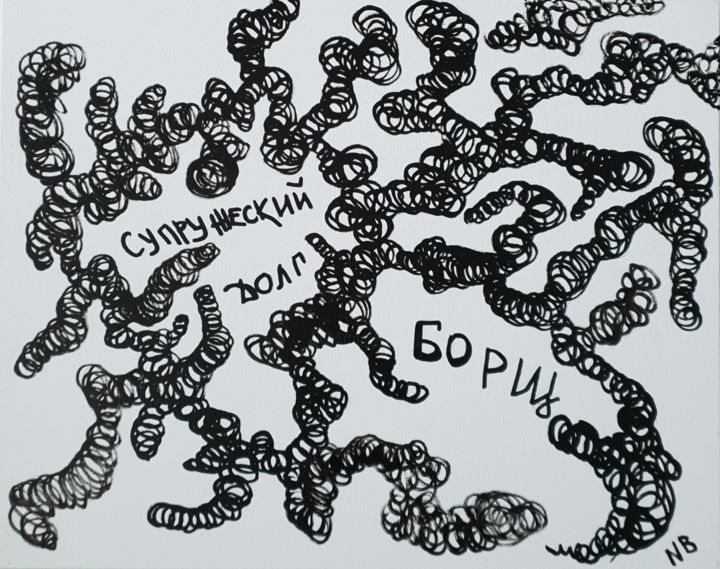 СУПРУЖЕСКИЙ
ДОЛГ
БОРЩ
NB